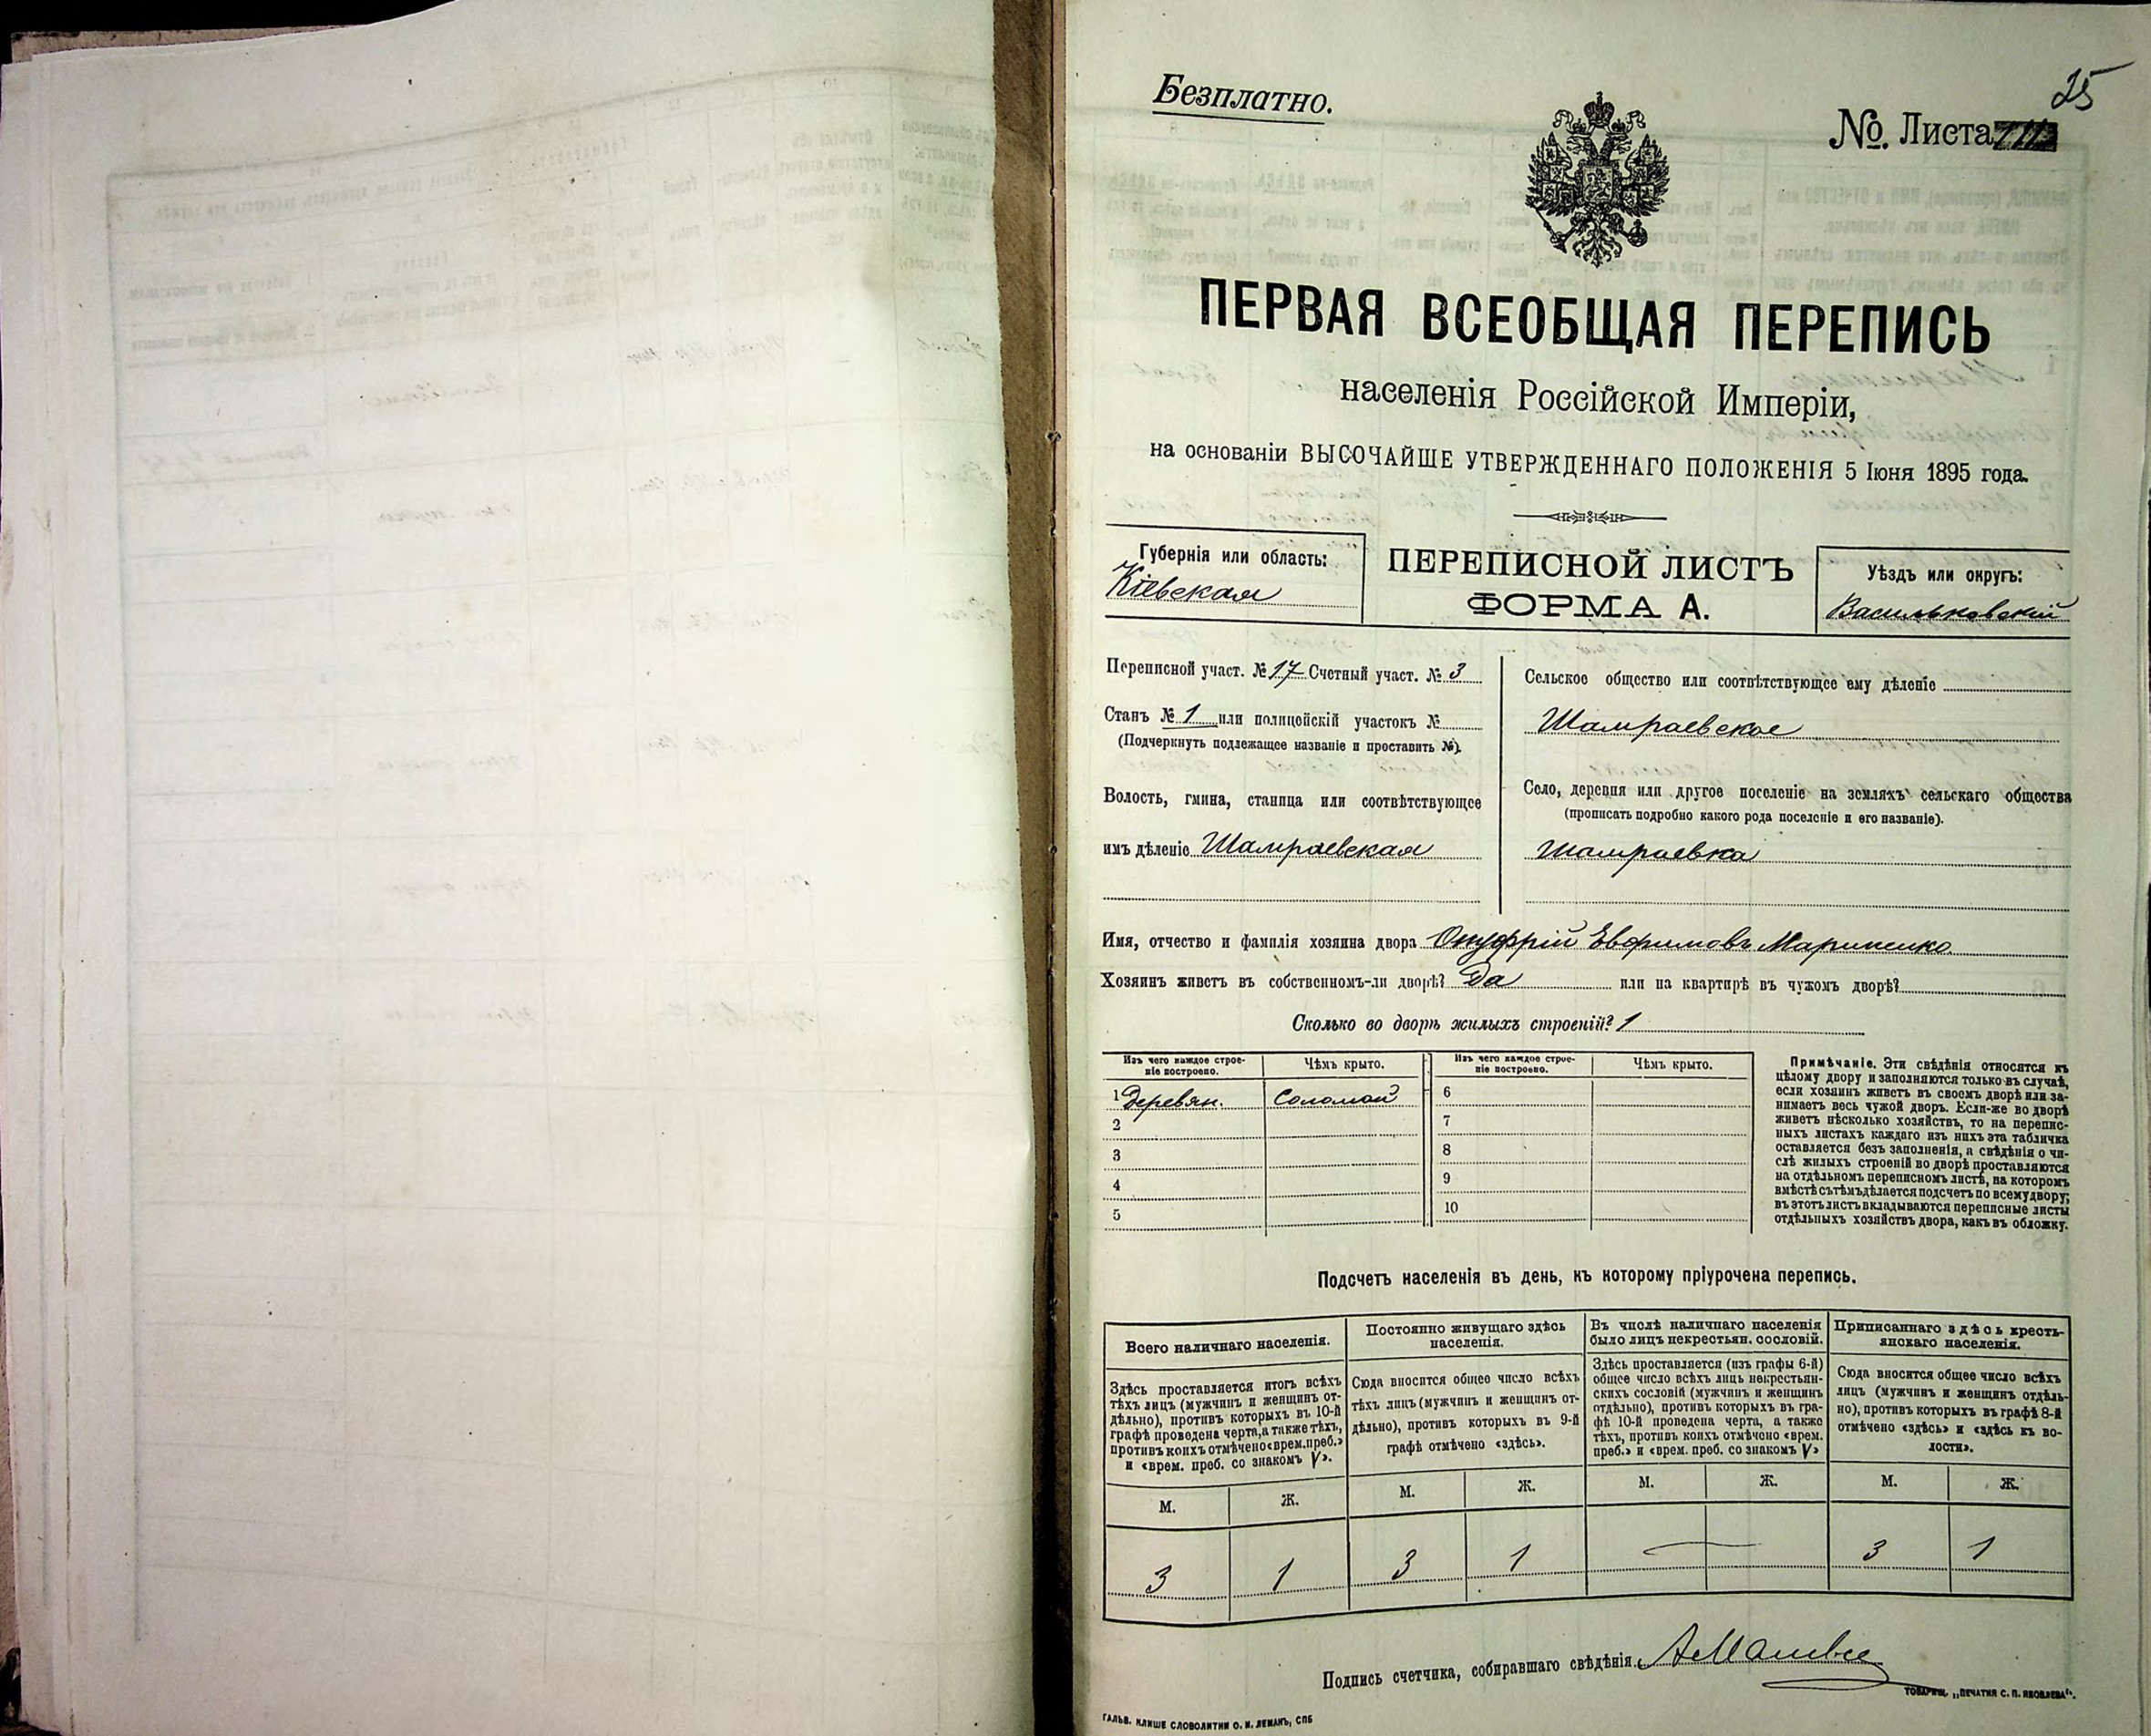 25
Безплатно.
№. Листа
ПЕРВАЯ ВСЕОБЩАЯ ПЕРЕПИСЬ
населенія Россійской Имперіи,
на основаніи ВЫСОЧАЙШЕ УТВЕРЖДЕННАГО ПОЛОЖЕНІЯ 5 Іюня 1895 года.
Губернія или область:
Кіевская
ПЕРЕПИСНОЙ ЛИСТЪ
ФОРМА А.
Уѣздъ или округъ:
Васильковскій
Переписной участ. № 17 Счетный участ. № 3
Станъ № 1 или полицейскій участокъ №
(Подчеркнуть подлежащее названіе и проставить №).
Волость, гмина, станица или соотвѣтствующее
имъ дѣленіе Шамраевская
Сельское общество или соотвѣтствующее ему дѣленіе
Шамраевское
Село, деревня или другое поселеніе на земляхъ сельскаго общества
(прописать подробно какого рода поселеніе и его названіе).
Шамраевка
Имя, отчество и фамилія хозяина двора Онуфрій Евфимовъ Мариненко.
Хозяинъ живетъ въ собственномъ-ли дворѣ? Да или на квартирѣ въ чужомъ дворѣ?
Сколько во дворѣ жилыхъ строеній? 1
Изъ чего каждое строе-
ніе построено.
Чѣмъ крыто.
Изъ чего каждое строе-
ніе построено.
Чѣмъ крыто.
1 Деревян. Соломой 6
2 7
3 8
4 9
5 10
Примѣчаніе. Эти свѣдѣнія относятся къ
цѣлому двору и заполняются только въ случаѣ,
если хозяинъ живетъ въ своемъ дворѣ или за-
нимаетъ весь чужой дворъ. Если-же во дворѣ
живетъ нѣсколько хозяйствъ, то на перепис-
ныхъ листахъ каждаго изъ нихъ эта табличка
оставляется безъ заполненія, а свѣдѣнія о чи-
слѣ жилыхъ строеній во дворѣ проставляются
на отдѣльномъ переписномъ листѣ, на которомъ
вмѣстѣ съ тѣмъ дѣлается подсчетъ по всему двору;
въ этотъ листъ вкладываются переписные листы
отдѣльныхъ хозяйствъ двора, какъ въ обложку.
Подсчетъ населенія въ день, къ которому пріурочена перепись.
Всего наличнаго населенія.
Здѣсь проставляется итогъ всѣхъ
тѣхъ лицъ (мужчинъ и женщинъ от-
дѣльно), противъ которыхъ въ 10-й
графѣ проведена черта, а также тѣхъ,
противъ коихъ отмѣчено «врем. преб.»
и «врем. преб. со знакомъ V».
Постоянно живущаго здѣсь
населенія.
Сюда вносится общее число всѣхъ
тѣхъ лицъ (мужчинъ и женщинъ от-
дѣльно), противъ которыхъ въ 9-й
графѣ отмѣчено «здѣсь».
Въ числѣ наличнаго населенія
было лицъ некрестьян. сословій.
Здѣсь проставляется (изъ графы 6-й)
общее число всѣхъ лицъ некрестьян-
скихъ сословій (мужчинъ и женщинъ
отдѣльно), противъ которыхъ въ гра-
фѣ 10-й проведена черта, а также
тѣхъ, противъ коихъ отмѣчено «врем.
преб.» и «врем. преб. со знакомъ V»
Приписаннаго здѣсь кресть-
янскаго населенія.
Сюда вносится общее число всѣхъ
лицъ (мужчинъ и женщинъ отдѣль-
но), противъ которыхъ въ графѣ 8-й
отмѣчено «здѣсь» и «здѣсь къ во-
лости».
М. Ж. М. Ж. М. Ж. М. Ж.
3 1 3 1 — 3 1
Подпись счетчика, собиравшаго свѣдѣнія.
ТОВАРИЩ. „ПЕЧАТНЯ С. П. ЯКОВЛЕВА“.
ГАЛЬВ. КЛИШЕ СЛОВОЛИТНИ О. И. ЛЕМАНЪ, СПБ